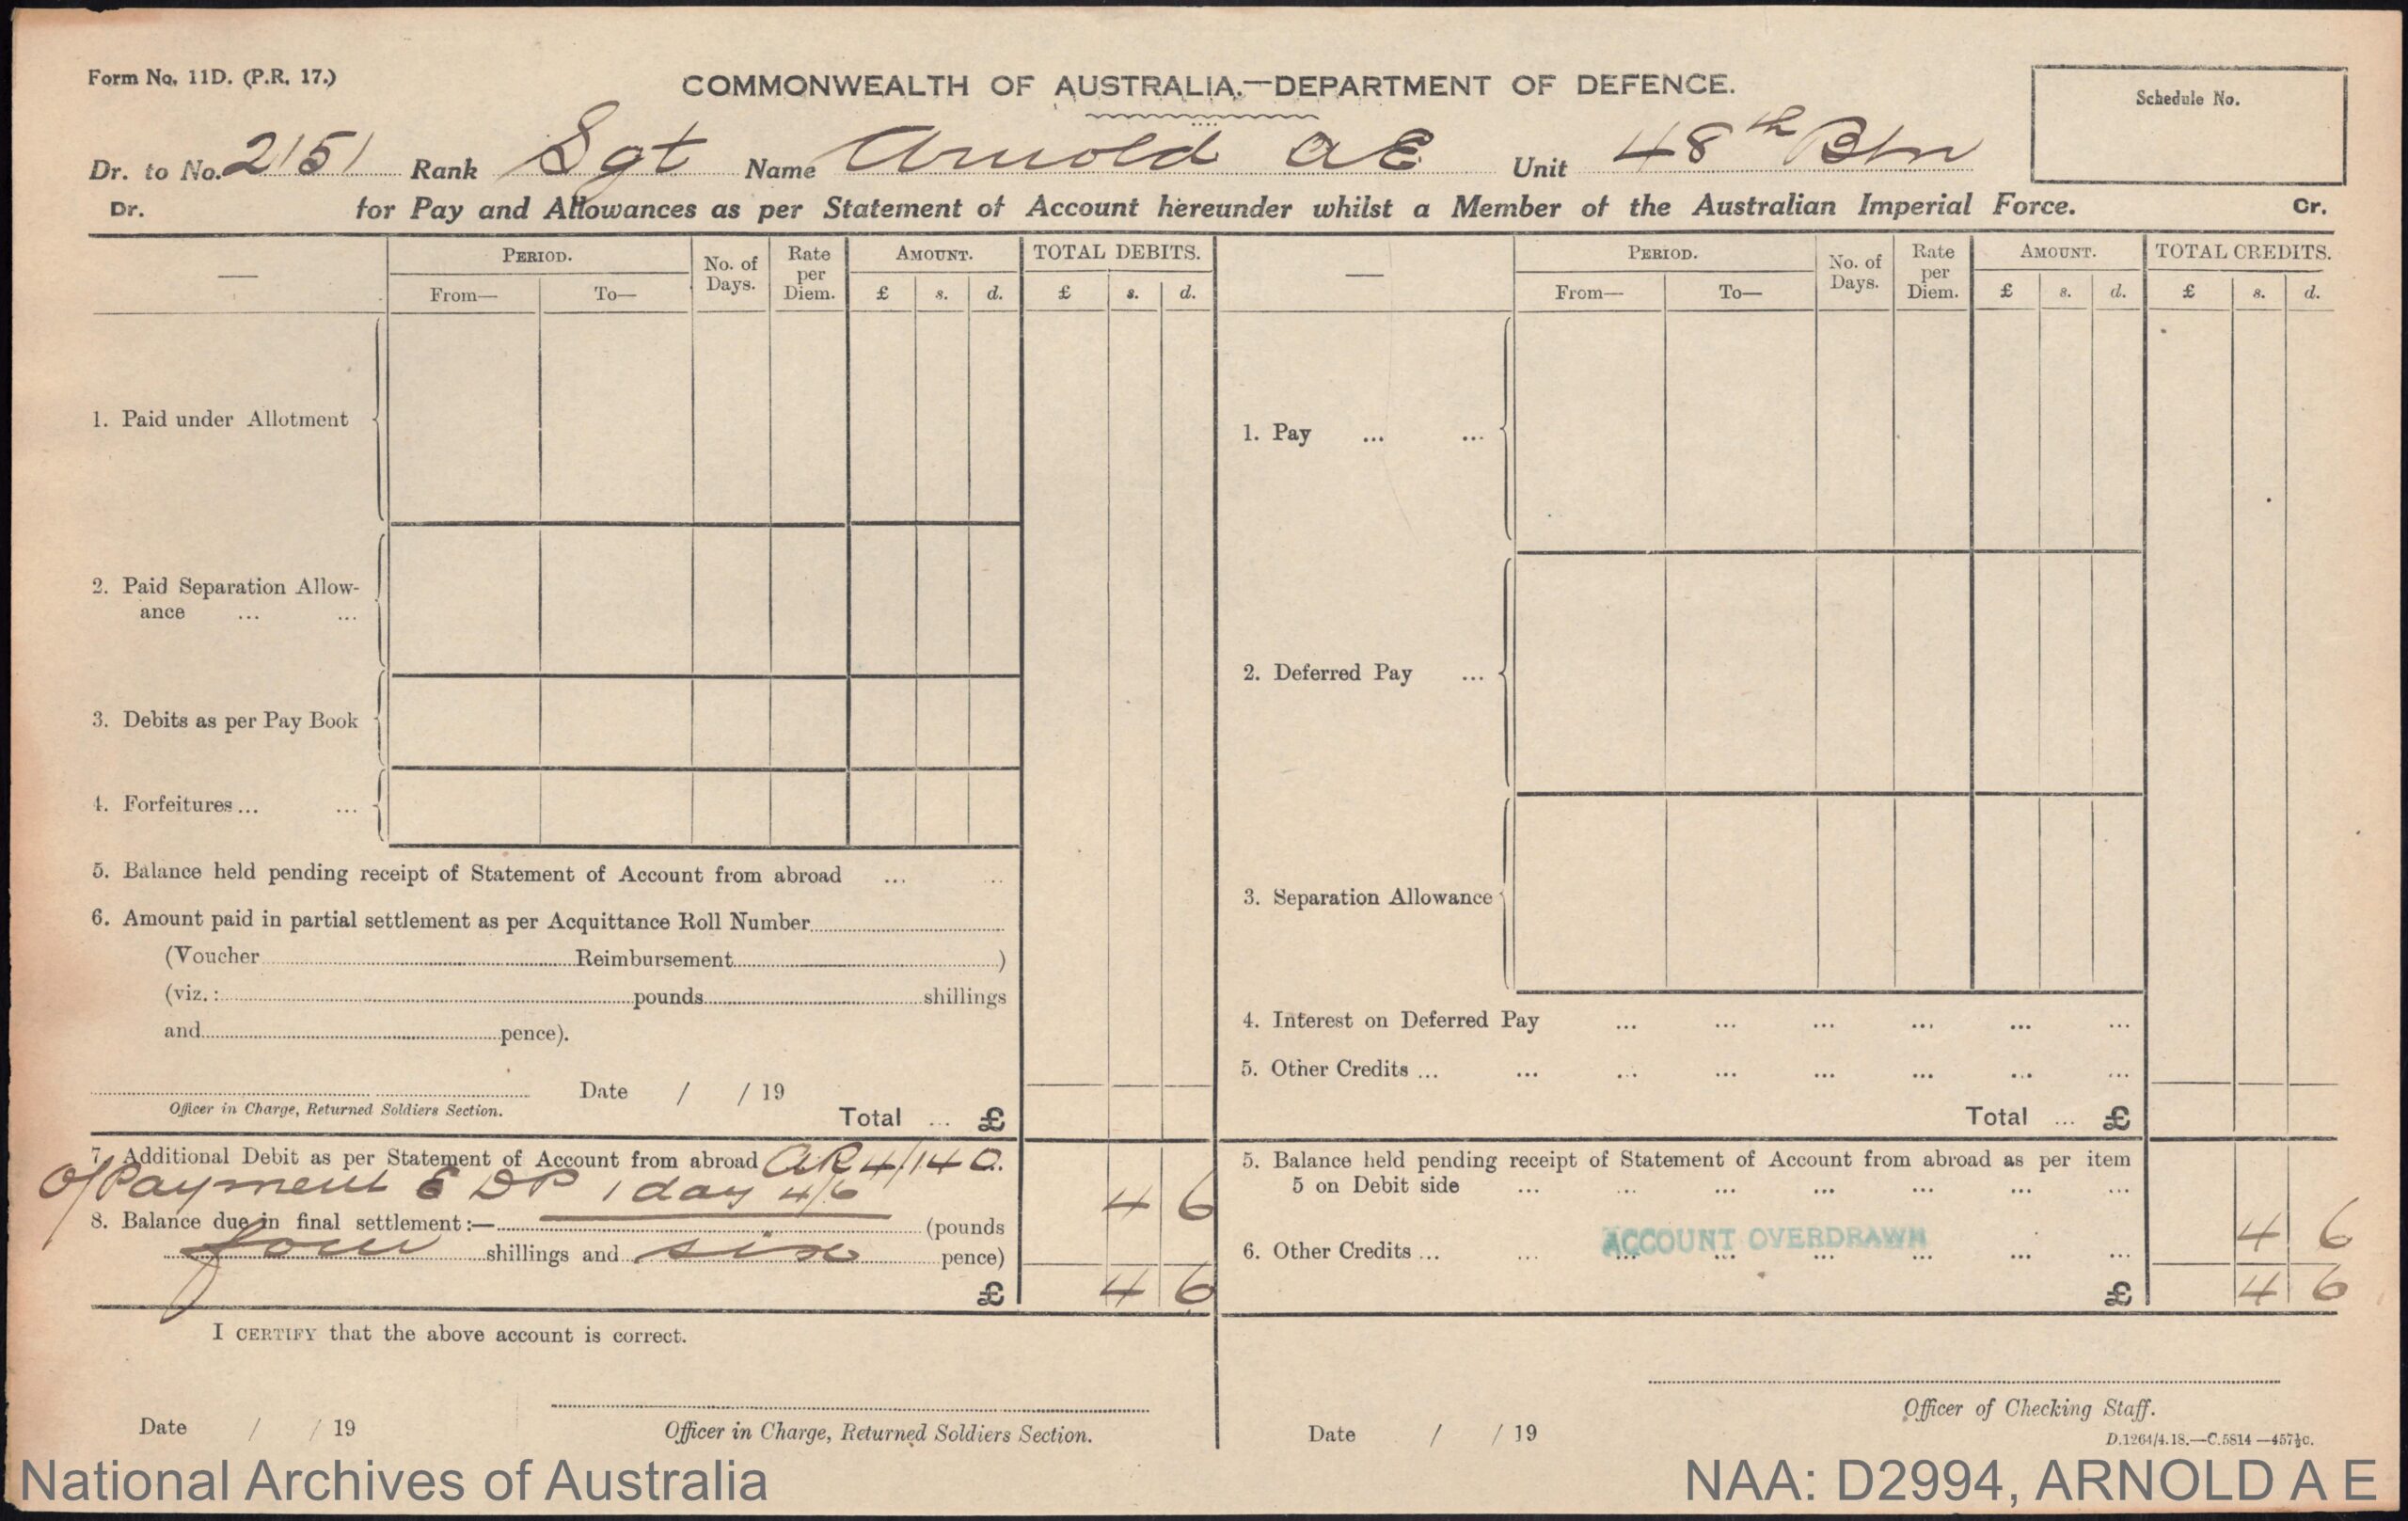 Form No. 11D. (P.R. 17.)
COMMONWEALTH OF AUSTRALIA.—DEPARTMENT OF DEFENCE.
Schedule No.
Dr. to No. 2151 Rank Sgt Name Arnold A E Unit 48th Btn
Dr. for Pay and Allowances as per Statement of Account hereunder whilst a Member of the Australian Imperial Force. Cr.
— PERIOD. No. of Days. Rate per Diem. AMOUNT. TOTAL DEBITS.
From— To— £ s. d. £ s. d.
1. Paid under Allotment
2. Paid Separation Allow-
ance ... ...
3. Debits as per Pay Book
4. Forfeitures ... ...
5. Balance held pending receipt of Statement of Account from abroad ... ...
6. Amount paid in partial settlement as per Acquittance Roll Number
(Voucher Reimbursement )
(viz. : pounds shillings
and pence).
Date / / 19
Officer in Charge, Returned Soldiers Section.
Total ... £
7. Additional Debit as per Statement of Account from abroad AR 4/140.
O/Payment & DP 1 day 4/6 4 6
8. Balance due in final settlement :— (pounds
four shillings and six pence)
£ 4 6
I CERTIFY that the above account is correct.
Date / / 19
Officer in Charge, Returned Soldiers Section.
— PERIOD. No. of Days. Rate per Diem. AMOUNT. TOTAL CREDITS.
From— To— £ s. d. £ s. d.
1. Pay ... ...
2. Deferred Pay ...
3. Separation Allowance
4. Interest on Deferred Pay ... ... ... ... ... ...
5. Other Credits ... ... ... ... ... ... ... ...
Total ... £
5. Balance held pending receipt of Statement of Account from abroad as per item
5 on Debit side ... ... ... ... ... ... ...
ACCOUNT OVERDRAWN
6. Other Credits ... ... ... ... ... ... ... ... 4 6
£ 4 6
Officer of Checking Staff.
Date / / 19
D.1264/4.18.—C.5814—457½c.
National Archives of Australia
NAA: D2994, ARNOLD A E